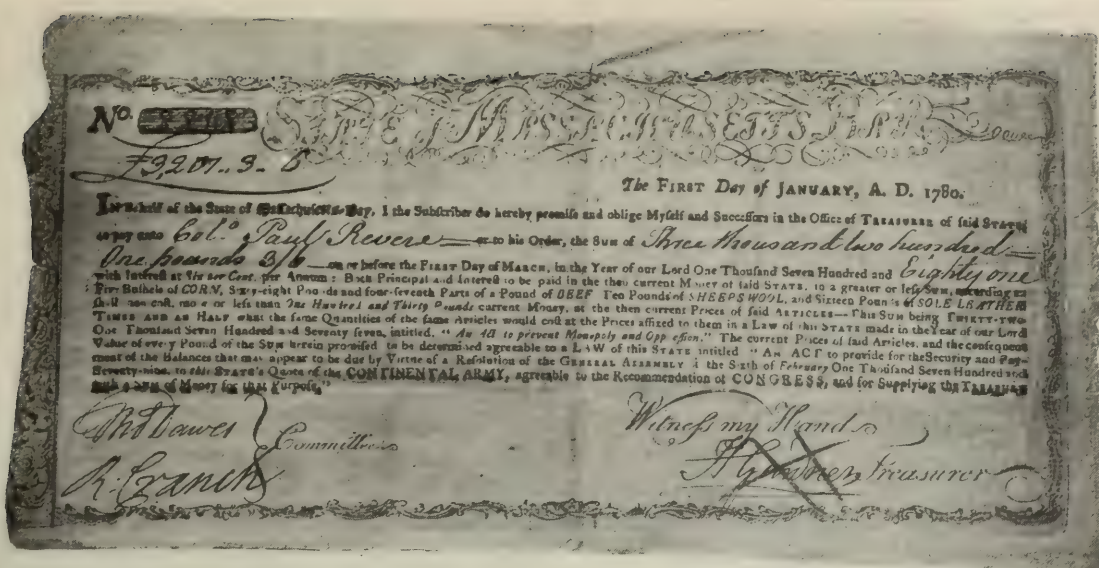 No.
STATE of MASSACHUSETTS BAY
£3,201..3..
The FIRST Day of JANUARY, A. D. 1780.
IN Behalf of the State of Massachusetts-Bay, I the Subscriber do hereby promise and oblige Myself and Successors in the Office of TREASURER of said STATE,
to pay unto Colo. Paul Revere or to his Order, the Sum of Three thousand two hundred
One pounds 3/ on or before the FIRST Day of MARCH, in the Year of our Lord One Thousand Seven Hundred and Eighty one
with Interest at Six per Cent. per Annum: Both Principal and Interest to be paid in the then current Money of said STATE, in a greater or less Sum, according as
Five Bushels of CORN, Sixty-eight Pounds and four-seventh Parts of a Pound of BEEF Ten Pounds of SHEEPS WOOL, and Sixteen Pounds of SOLE LEATHER
shall then cost, more or less than One Hundred and Thirty Pounds current Money, at the then current Prices of said ARTICLES—This SUM being THIRTY-TWO
TIMES AND AN HALF what the same Quantities of the same Articles would cost at the Prices affixed to them in a Law of this STATE made in the Year of our Lord
One Thousand Seven Hundred and Seventy seven, intitled, "An Act to prevent Monopoly and Oppression." The current Prices of said Articles, and the consequent
Value of every Pound of the Sum herein promised to be determined agreeable to a LAW of this STATE intitled "AN ACT to provide for the Security and Pay-
ment of the Balances that may appear to be due by Virtue of a Resolution of the GENERAL ASSEMBLY of the Sixth of February One Thousand Seven Hundred and
Seventy-nine, to this STATE's Quota of the CONTINENTAL ARMY, agreeable to the Recommendation of CONGRESS, and for Supplying the TREASURY
with a SUM of Money for that Purpose."
Thos Dawes
Committee
R. Cranch
Witness my Hand
H Gardner Treasurer